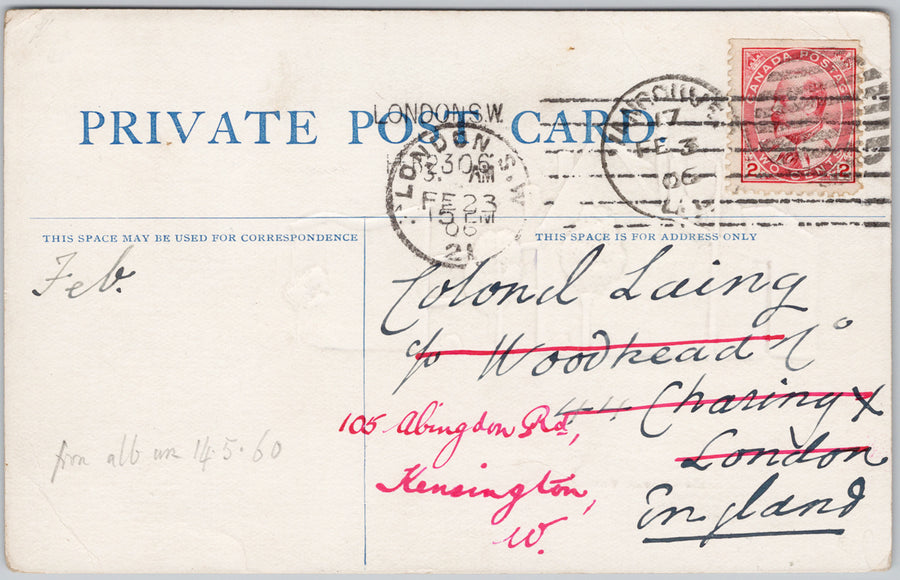 PRIVATE POST CARD.
LONDON S.W.
LONDON. S.W
3. AM
FE 23
15 PM
06
21
VANCOUVER
17
FE 3
06
CANADA POSTAGE
2 TWO CENTS 2
THIS SPACE MAY BE USED FOR CORRESPONDENCE
THIS SPACE IS FOR ADDRESS ONLY
Feb.
Colonel Laing
c/o Woodhead & Co
44 Charing X
London
England
105 Abingdon Rd,
Kensington,
W.
14.5.60